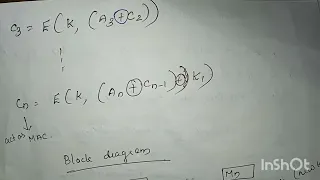 C3 = E(K, (A3 ⊕ C2))
Cn = E(K, (An ⊕ Cn-1) ⊕ K1)
act as MAC.
Block diagram
Mn
InShOt